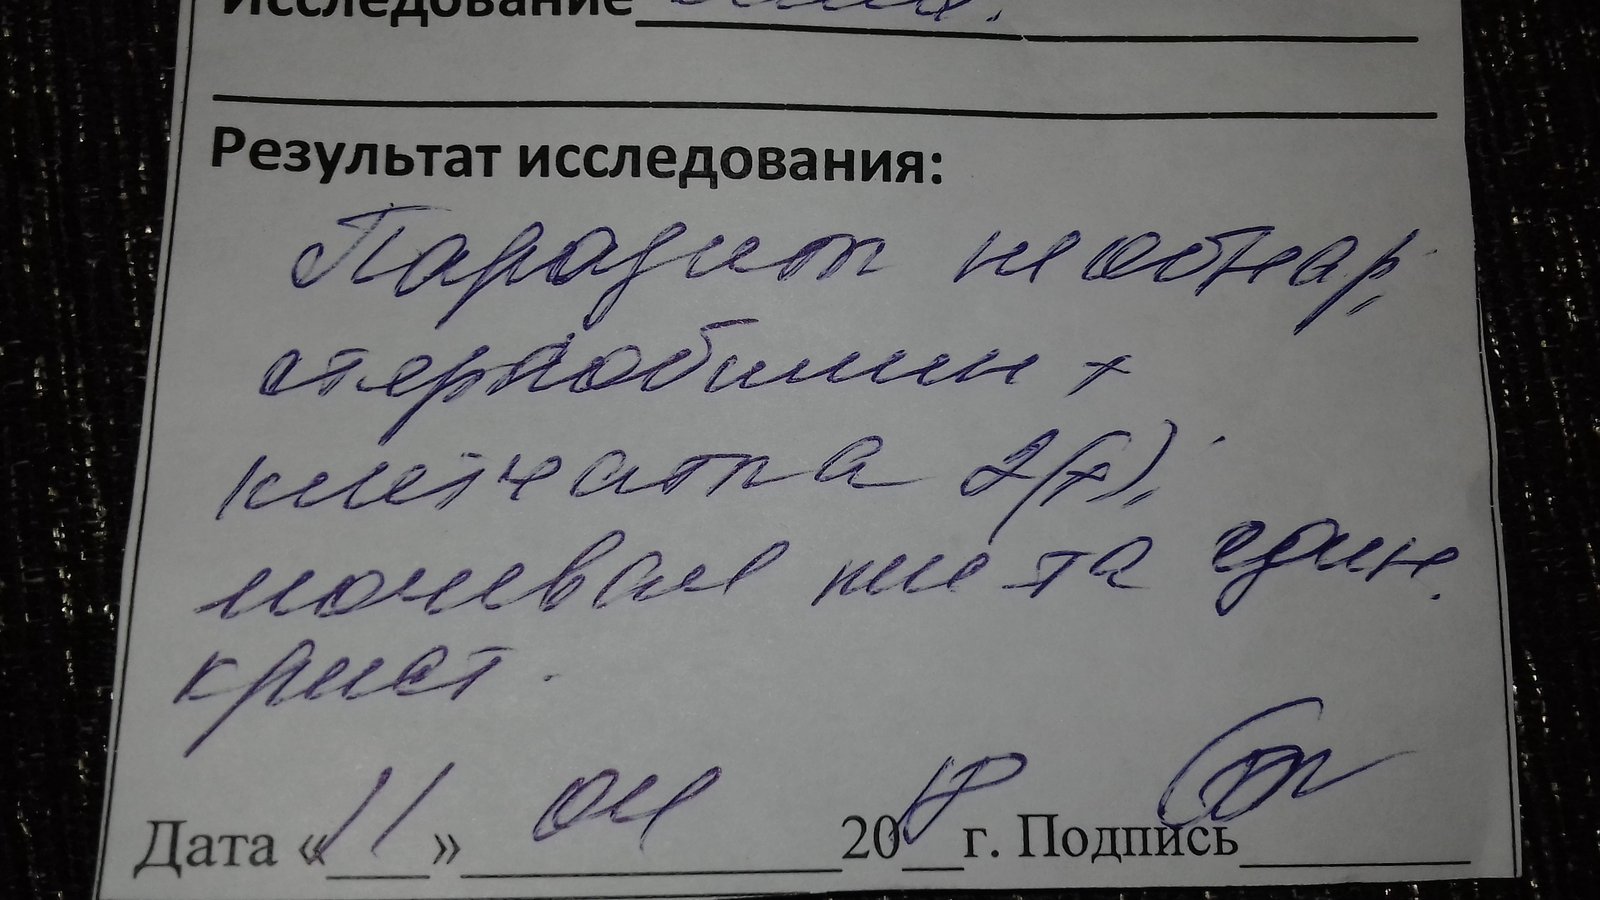 Исследование
Результат исследования:
Паразит не обнар,
стеркобилин +
клетчатка 2(+),
мочевая к-та един.
крист.
Дата «11» 20 18 г. Подпись